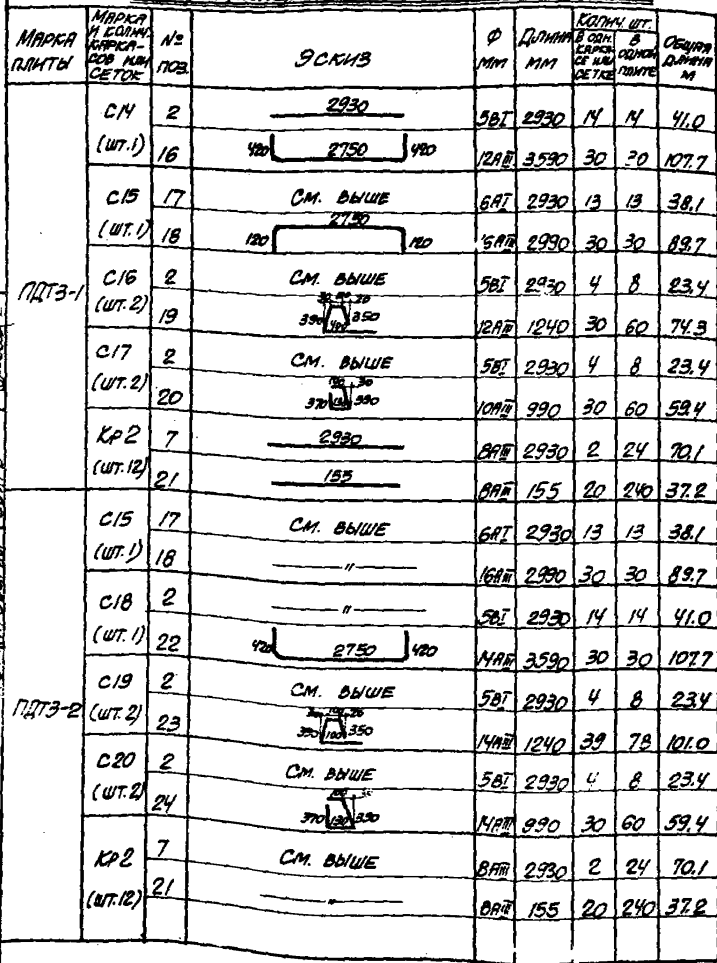 МАРКА ПЛИТЫ МАРКА И КОЛИЧ. КАРКА-СОВ ИЛИ СЕТОК № ПОЗ. ЭСКИЗ Ф ММ ДЛИНА ММ КОЛИЧ. ШТ. В ОДН. КАРКА-СЕ ИЛИ СЕТКЕ В ОДНОЙ ПЛИТЕ ОБЩАЯ ДЛИНА М
ПДТ3-1
С14 (ШТ.1) 2 2930 5ВI 2930 14 14 41.0
16 420 2750 420 12АIII 3590 30 30 107.7
С15 (ШТ.1) 17 СМ. ВЫШЕ 6АI 2930 13 13 38.1
18 120 2750 120 16АIII 2990 30 30 89.7
С16 (ШТ.2) 2 СМ. ВЫШЕ 5ВI 2930 4 8 23.4
19 350 350 12АIII 1240 30 60 74.3
С17 (ШТ.2) 2 СМ. ВЫШЕ 5ВI 2930 4 8 23.4
20 370 390 10АIII 990 30 60 59.4
КР2 (ШТ.12) 7 2930 8АIII 2930 2 24 70.1
21 155 8АIII 155 20 240 37.2
ПДТ3-2
С15 (ШТ.1) 17 СМ. ВЫШЕ 6АI 2930 13 13 38.1
18 —〃— 16АIII 2990 30 30 89.7
С18 (ШТ.1) 2 —〃— 5ВI 2930 14 14 41.0
22 420 2750 420 14АIII 3590 30 30 107.7
С19 (ШТ.2) 2 СМ. ВЫШЕ 5ВI 2930 4 8 23.4
23 350 100 350 14АIII 1240 39 78 101.0
С20 (ШТ.2) 2 СМ. ВЫШЕ 5ВI 2930 4 8 23.4
24 100 370 130 390 14АIII 990 30 60 59.4
КР2 (ШТ.12) 7 СМ. ВЫШЕ 8АIII 2930 2 24 70.1
21 —〃— 8АIII 155 20 240 37.2